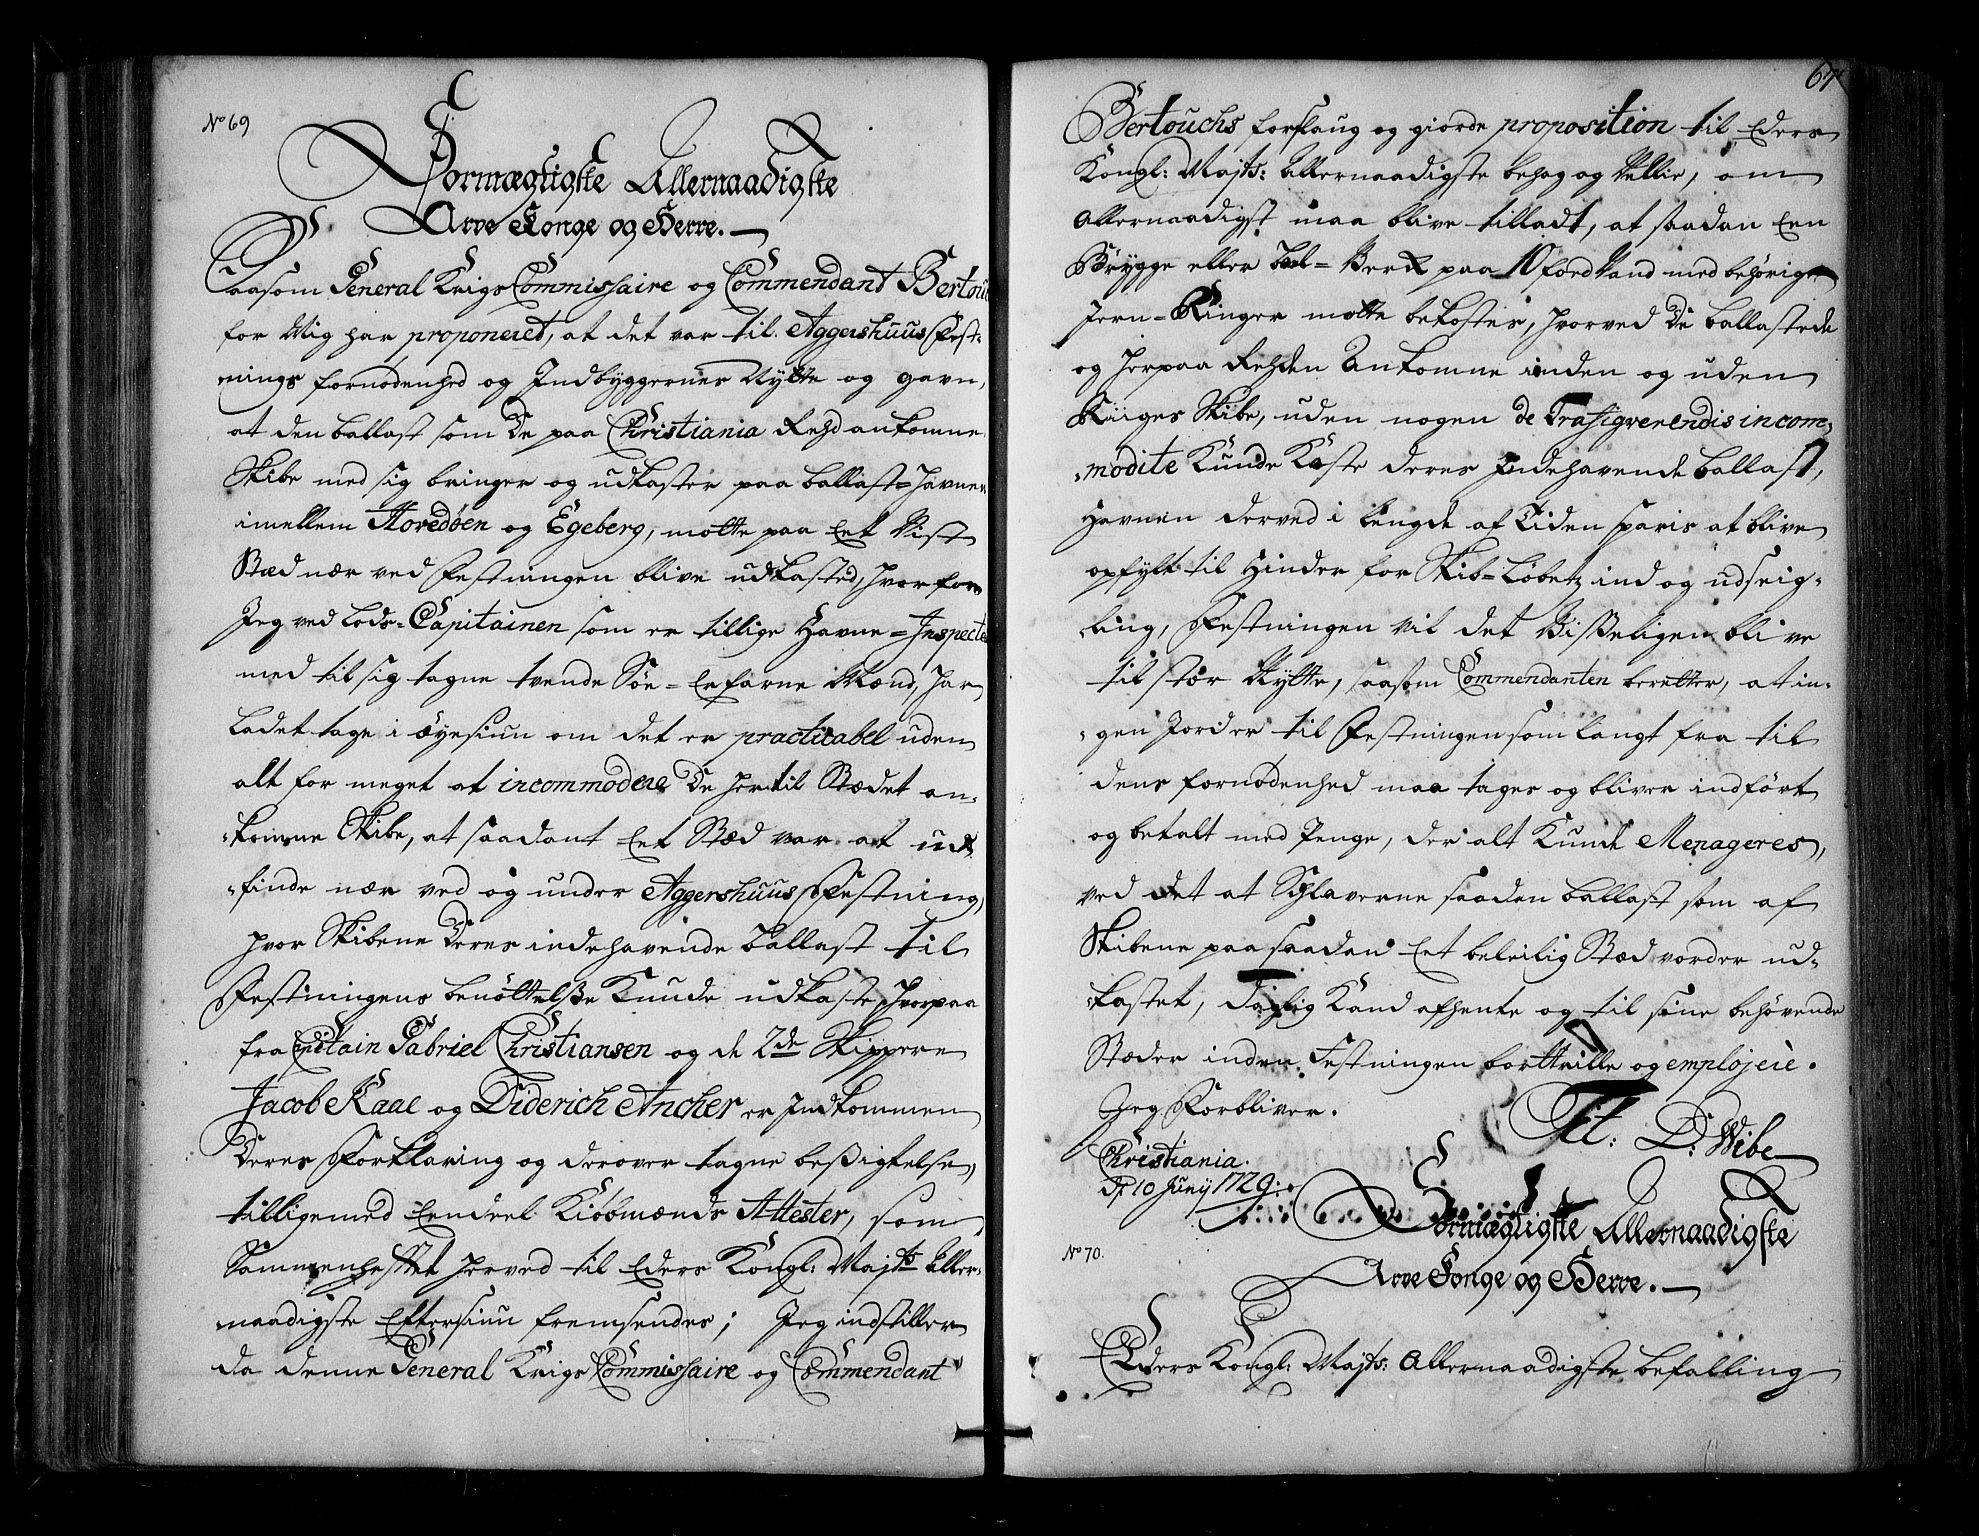 No 69
Stormægtigste Allernaadigste
Arve Konge og Herre.
Saasom General Krigs Commissaire og Commendant Bertouch
for Mig har proponeret, at det var til Aggershuus Fæst-
nings fornødenhed og Indbyggernes Nytte og gavn,
at den ballast som De paa Christiania Rehd ankomne
Skibe med sig bringer og udkaster paa ballast-Havnen
imellem Hovedøen og Egeberg, motte paa Eet Vist
Stæd nær ved Festningen blive udkasted, hvorfor
Jeg ved Lods-Capitainen som er tillige Havne-Inspecteur
med til sig tagne tvende Søe-Erfarne Mænd, har
Ladet tage i Øyesiun om det er practicabel uden
alt for meget at incommodere De hertil Stædet an-
komne Skibe, at saadant Eet Stæd var at ud-
finde nær ved og under Aggershuus Festning,
hvor Skibene Deres indehavende ballast til
Festningens benöttelsse Kunde udkaste, Hvorpaa
fra Capitain Gabriel Christiansen og de 2de Skippere
Jacob Kaae og Diderich Ancher er Indkommen
Deres Forklaring og derover tagne beßigtelse,
tilligemed Eendeel Kiøbmænds Attester, som
Sammenhefftet herved til Eders Kongl: Majts Aller-
naadigste Eftersiun fremsendes; Jeg indstiller
da denne General Krigs Commissaire og Commendant
67
Bertouchs forslaug og giorde proposition til Eders
Kongl: Majts: Allernaadigste behag og Villie, om
Allernaadigst maa blive tilladt, at saadan Een
Brygge eller Bol-Verk paa 10 fod Vand med behørige
Jern-Ringer motte bekostes, hvorved De ballastede
og herpaa Rehden Ankomne inden og uden
Riiges Skibe, uden nogen de incom-
modite Kunde Kaste deres Indehavende ballast,
Havnen derved i Lengde af Tiden sparis at blive
opfylt til Hinder for Skib-Løbetz ind og udseig-
ling, Festningen vil det Visseligen blive
til stor Nytte, saasom Commendanten beretter, at in-
gen Jord er til Festningen som langt fra til
dens fornødenhed maa tages og bliver indført
og betalt med Penge, der alt Kunde Menageres,
ved det at Schlaverne saadan ballast som af
Skibene paa saadan Eet beleilig Stæd vorder ud-
kastet, Daglig Kand afhente og til sine behøvende
Stæder inden Festningen borttrille og emplojere.
Jeg Forbliver.
Tit: D: Wibe
Christiania.
D 10 Junij 1729.
Stormægtigste Allernaadigste
No 70.
Arve Konge og Herre.
Eders Kongl: Majts: Allernaadigste befalling